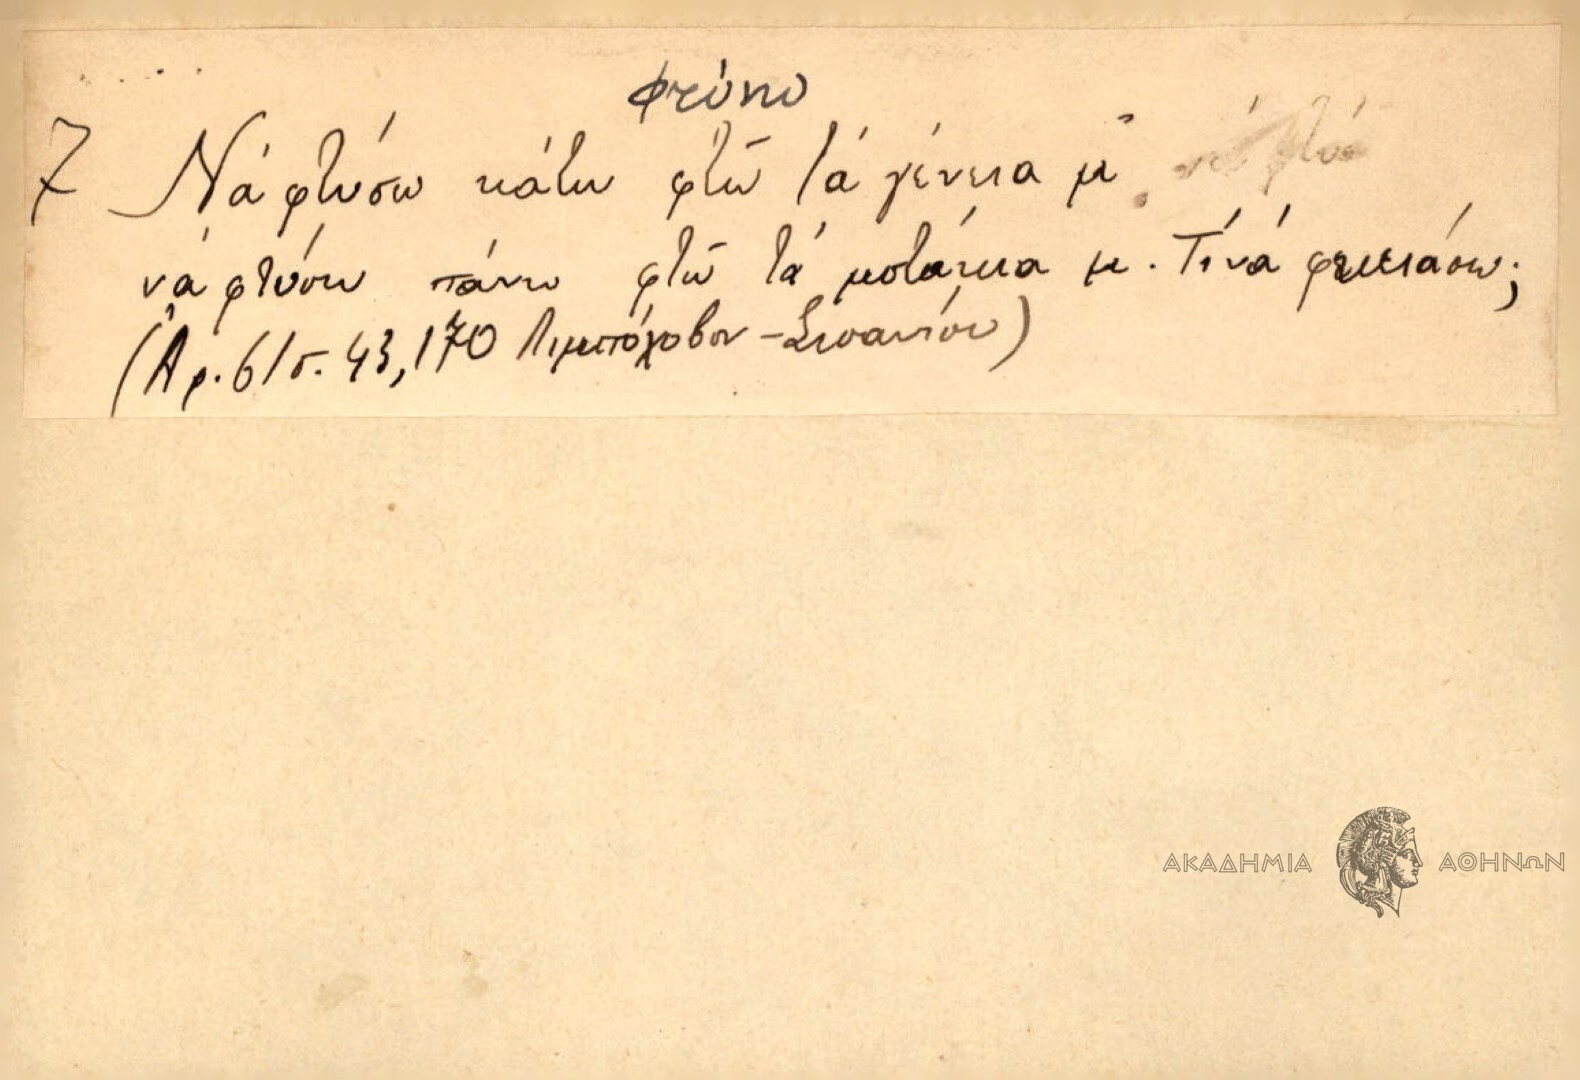 φτύνω
7 Νά φτύσω κάτω φτῶ τά γένεια μ̄
νά φτύσω πάνω φτῶ τά μστάκια μ. Τί νά φκιάσω;
(Ἀρ. 61 σ. 43, 170 Λιμπόχοβον - Σιναπίου)
ΑΚΑΔΗΜΙΑ ΑΘΗΝΩΝ